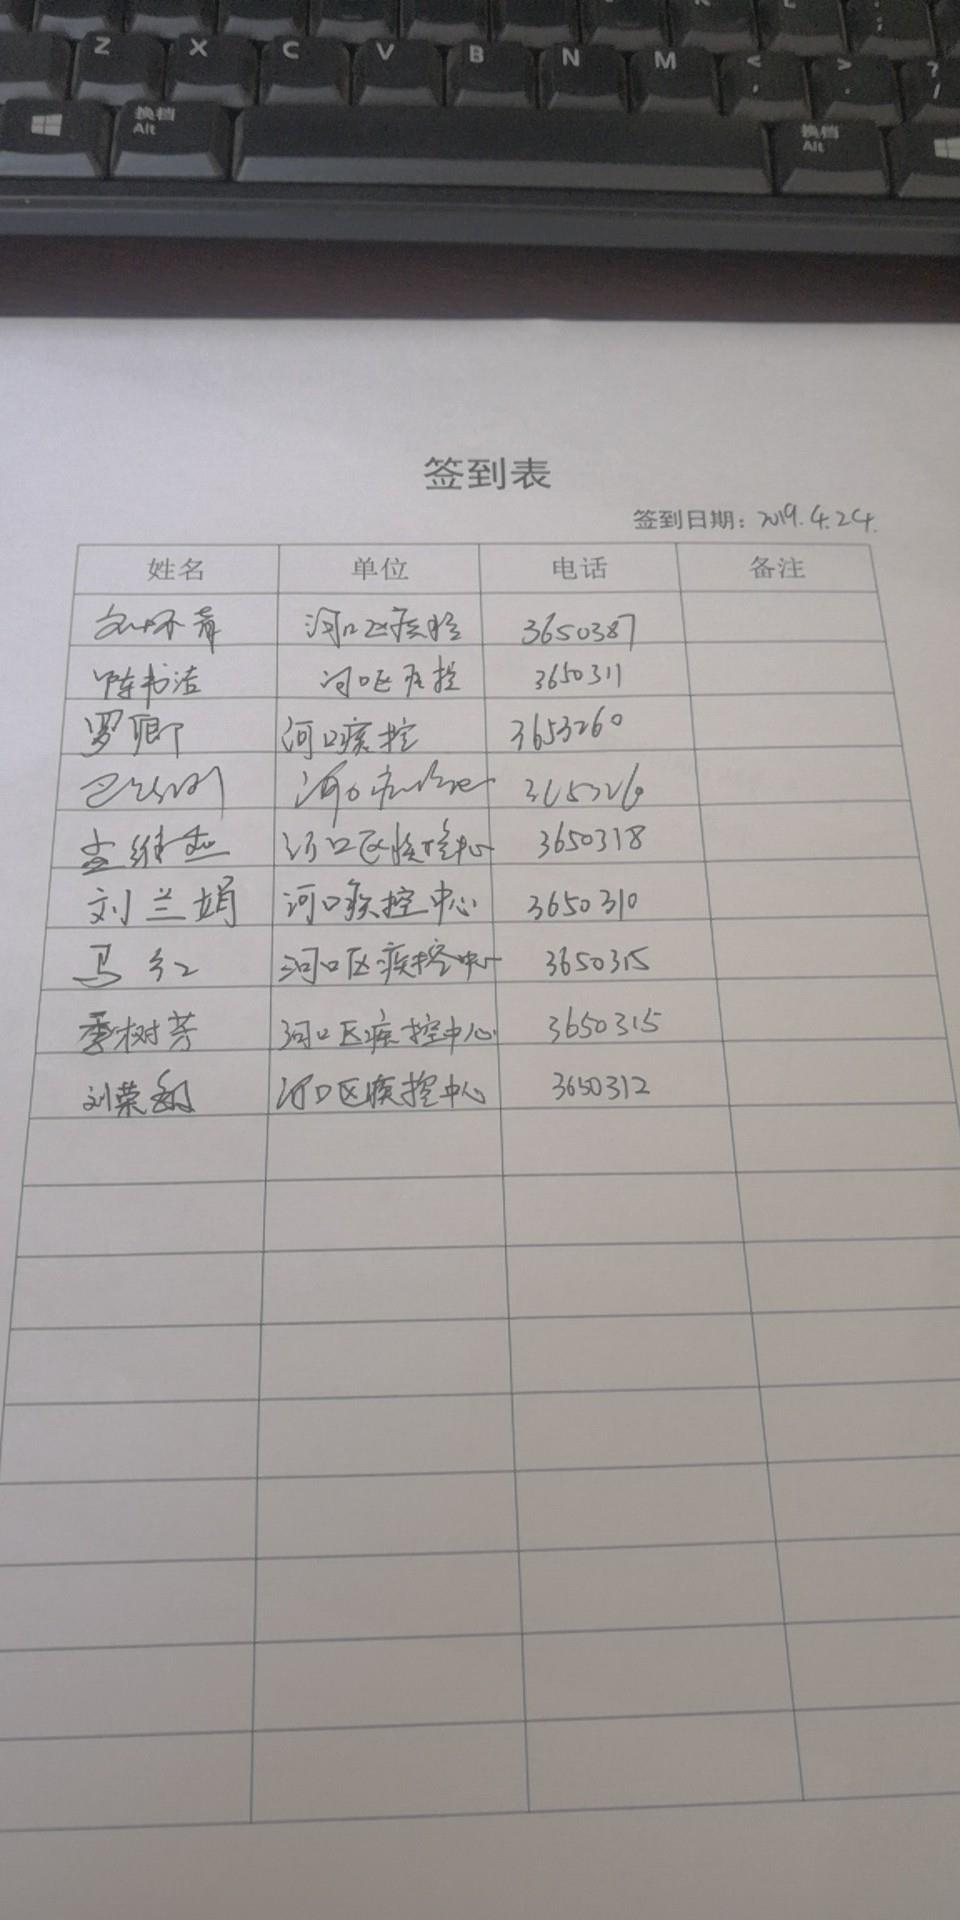 Z X C V B N M < >
, . ? /
换档 Alt 换档 Alt
签到表
签到日期：2019.4.24.
姓名 单位 电话 备注
河口区疾控 3650387
陈书洁 河口区疾控 3650311
罗卿 河口疾控 3653260
河口
孟维 河口区疾控中心 3650318
刘兰娟 河口疾控中心 3650310
马红 河口区疾控中心 3650315
季树芳 河口区疾控中心 3650315
刘荣 河口区疾控中心 3650312